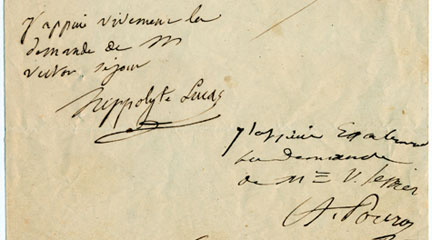 J'appuie vivement la
demande de M
victor séjour
Hippolyte Lucas
J'appuie également
la demande
de M V. Séjour